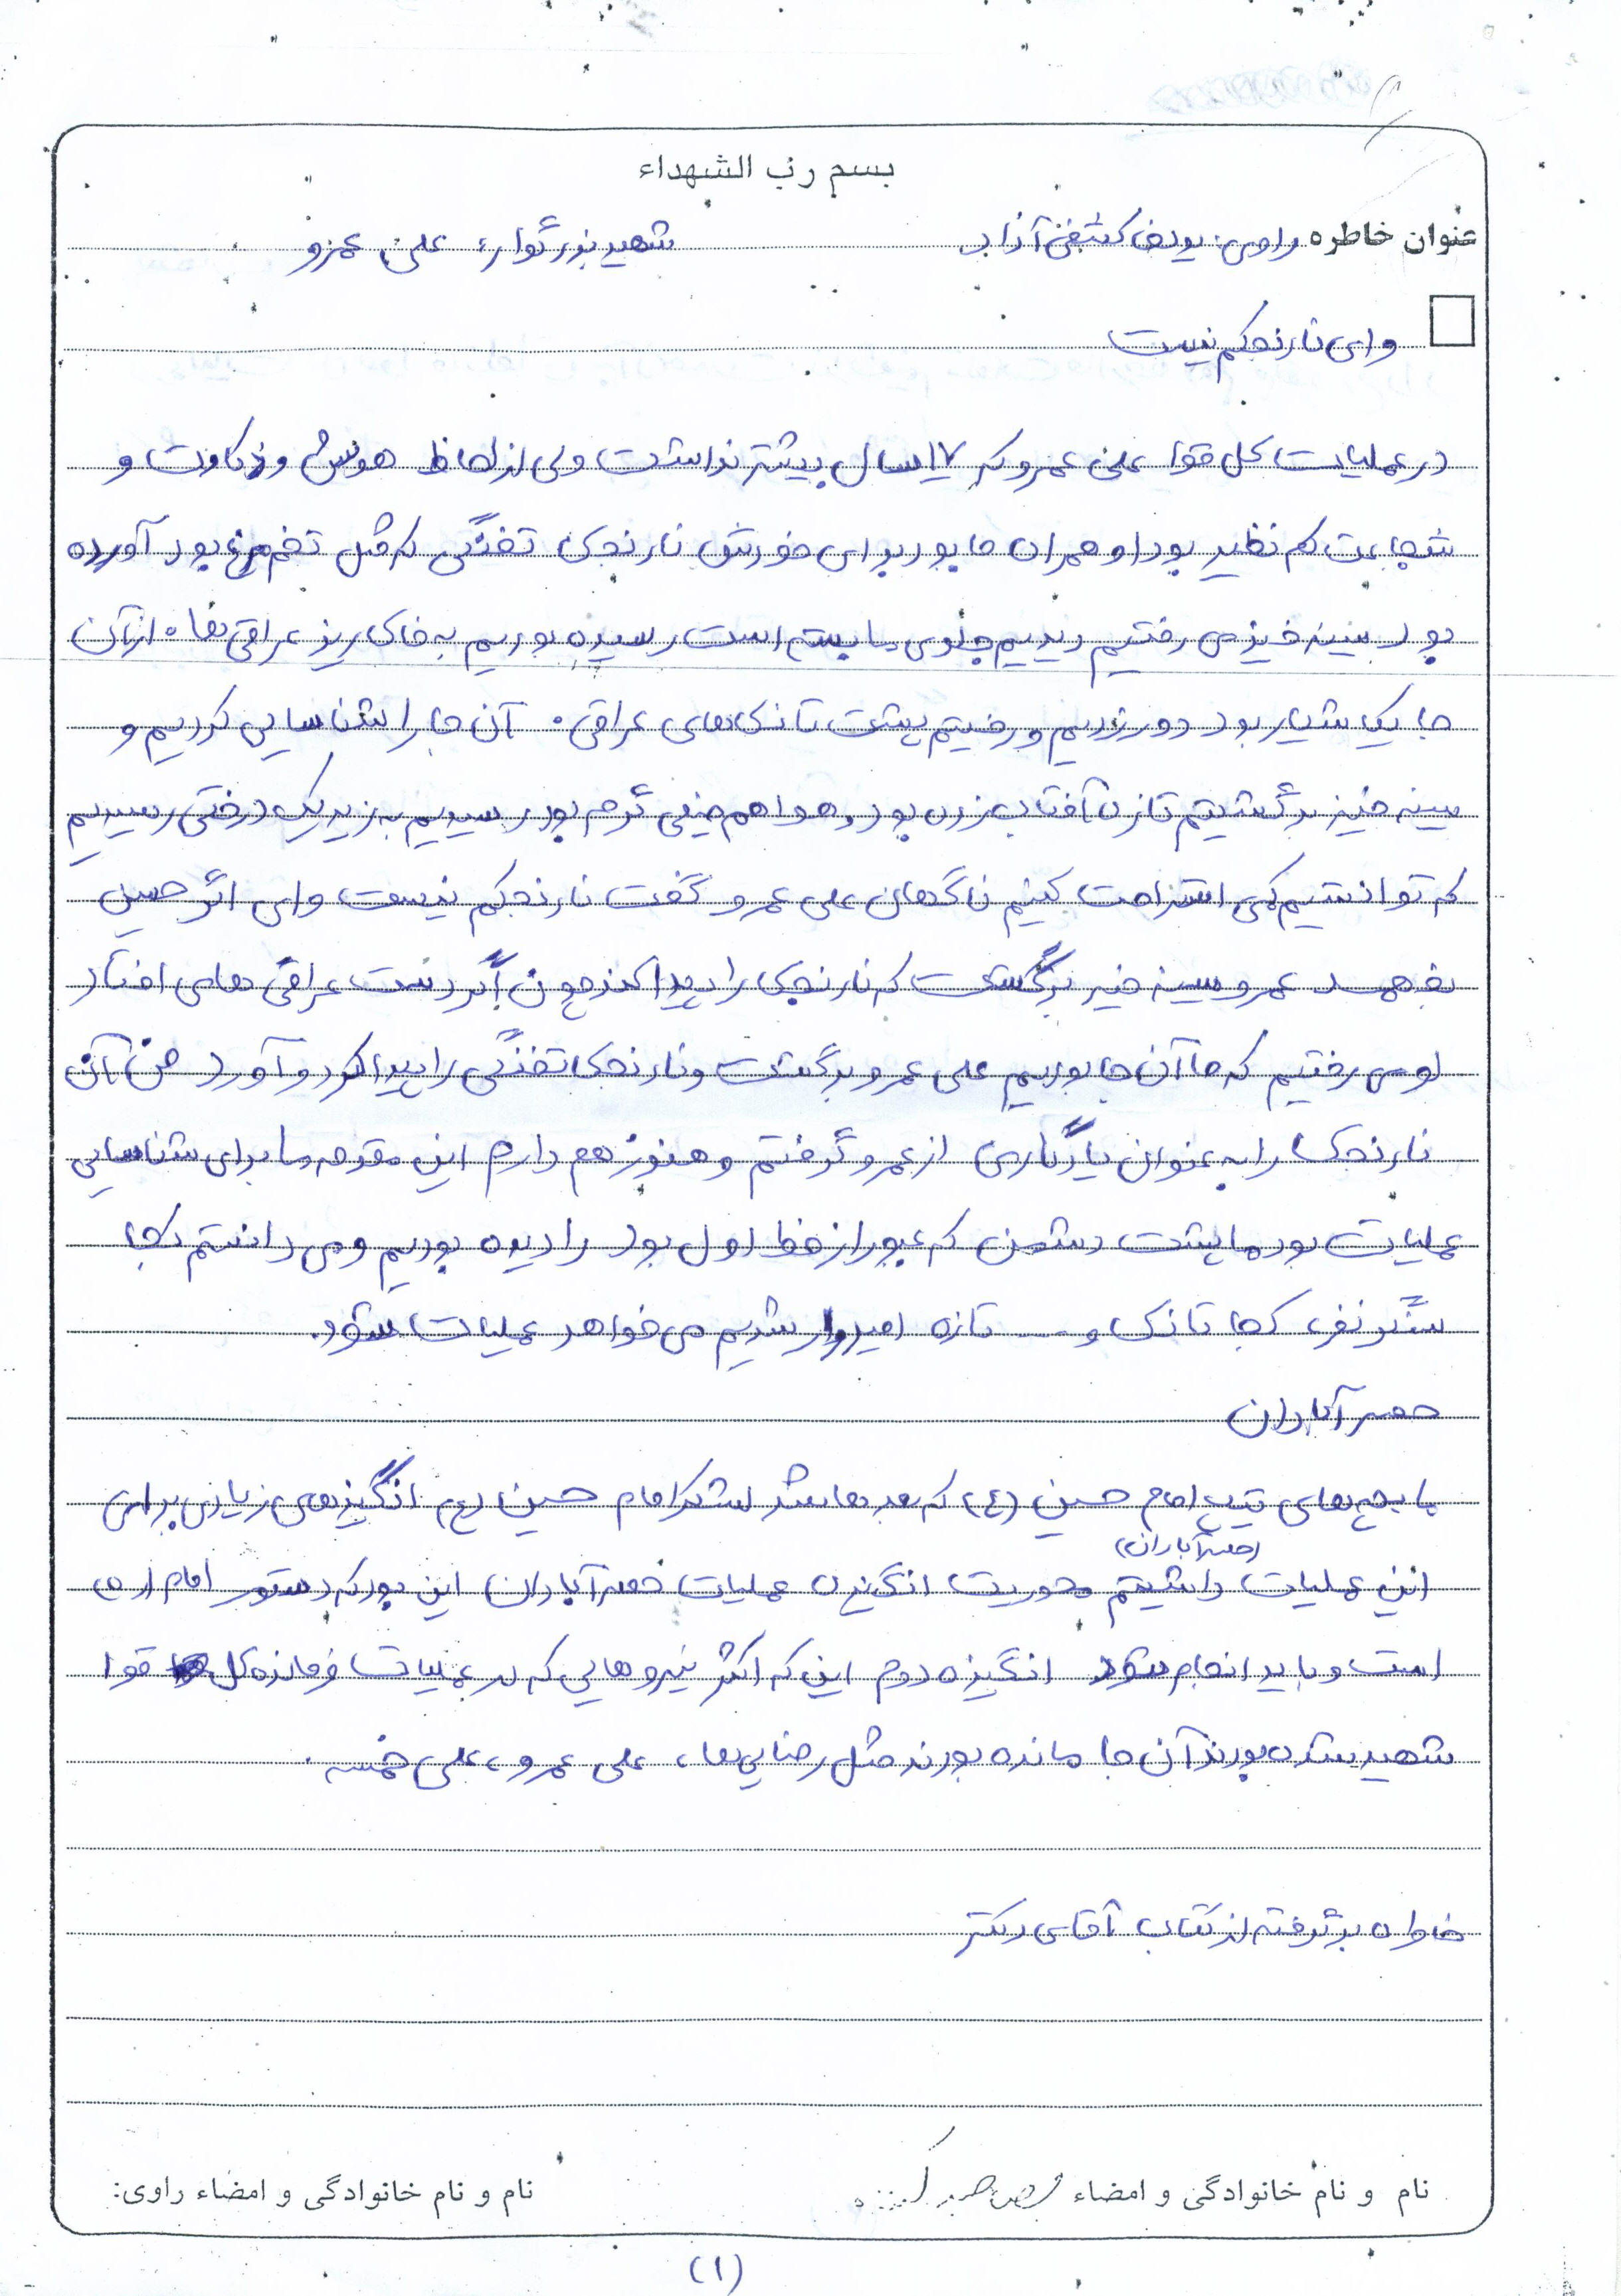 بسم رب الشهداء
عنوان خاطره راوی: یوسف کشفی آزاد شهید بزرگوار، علی عمرو
وای نارنجکم نیست
در عملیات کل قوا علی عمرو که ۱۷ سال بیشتر نداشت ولی از لحاظ هوش و ذکاوت و
شجاعت کم نظیر بود او همراه ما بود برای خودش نارنجک تفنگی که مثل تخم مرغ بود آورده
بود سینه خیز می رفتیم دیدیم جلوی ما بسته است رسیده بودیم به خاک ریز عراقی ها. از آن
جا یک شیار بود دور زدیم و رفتیم پشت تانک های عراقی. آن جا را شناسایی کردیم و
سینه خیز برگشتیم تازه آفتاب زده بود. هوا هم خیلی گرم بود رسیدیم به زیر یک درختی رسیدیم
که توانستیم کمی استراحت کنیم ناگهان علی عمرو گفت نارنجکم نیست وای اگر حسین
بفهمد عمرو سینه خیز برگشت که نارنجک را پیدا کند چون اگر دست عراقی ها می افتاد
لو می رفتیم که ما آن جا بودیم علی عمرو برگشت و نارنجک تفنگی را پیدا کرد و آورد من آن
نارنجک را به عنوان یادگاری از عمرو گرفتم و هنوز هم دارم این مقدمه ما برای شناسایی
عملیات بود ما پشت دشمن که عبور از خط اول بود را دیده بودیم و می دانستم کجا
سنگر نفر، کجا تانک و ... تازه امیدوار شدیم می خواهد عملیات شود.
حصر آبادان
ما بچه های تیپ امام حسین (ع) که بعدها شد لشکر امام حسین (ع) انگیزه های زیادی برای
(حصر آبادان)
این عملیات داشتیم محوریت انگیزه عملیات حصر آبادان این بود که دستور امام (ره)
است و باید انجام شود انگیزه دوم این که اکثر نیروهایی که در عملیات فرمانده کل قوا
شهید شده بودند آن جا مانده بودند مثل رضایی ها، علی عمرو، علی خمسه.
خاطره برگرفته از کتاب آقای دکتر
نام و نام خانوادگی و امضاء
نام و نام خانوادگی و امضاء راوی:
(۱)